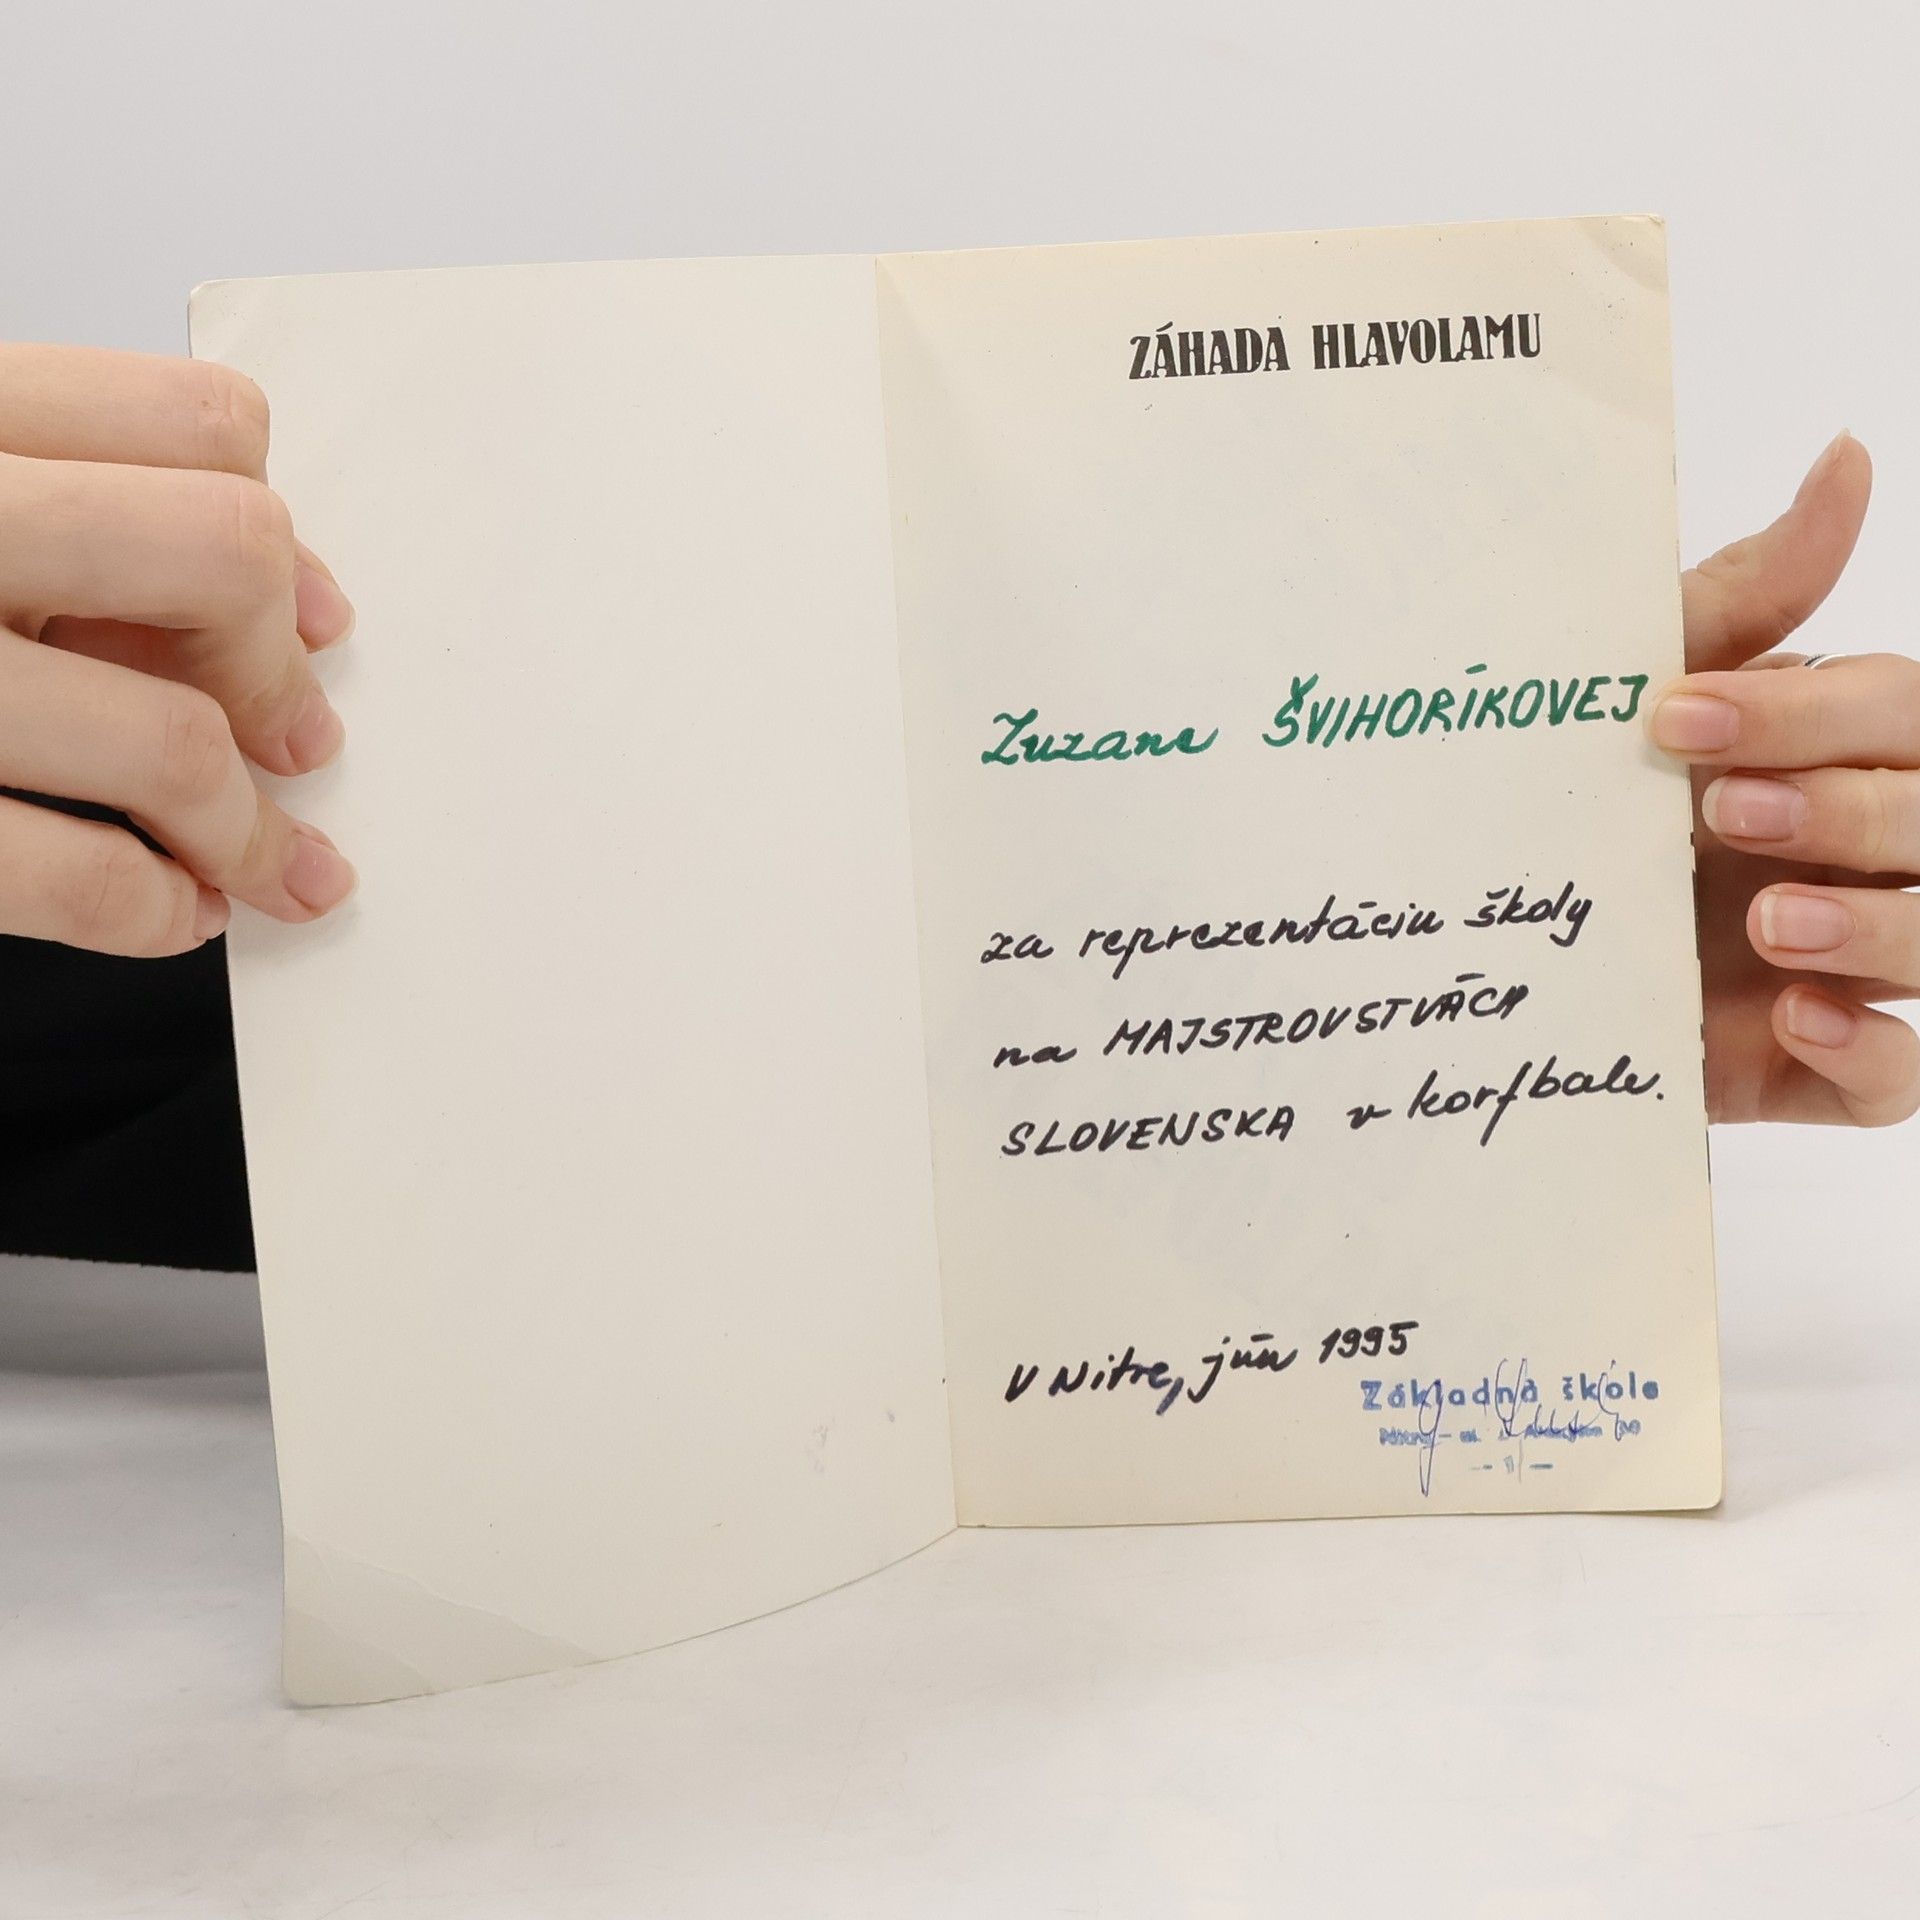 ZÁHADA HLAVOLAMU
Zuzane ŠVIHORÍKOVEJ
za reprezentáciu školy
na MAJSTROVSTVÁCH
SLOVENSKA v korfbale.
V Nitre, jún 1995
Základná škola